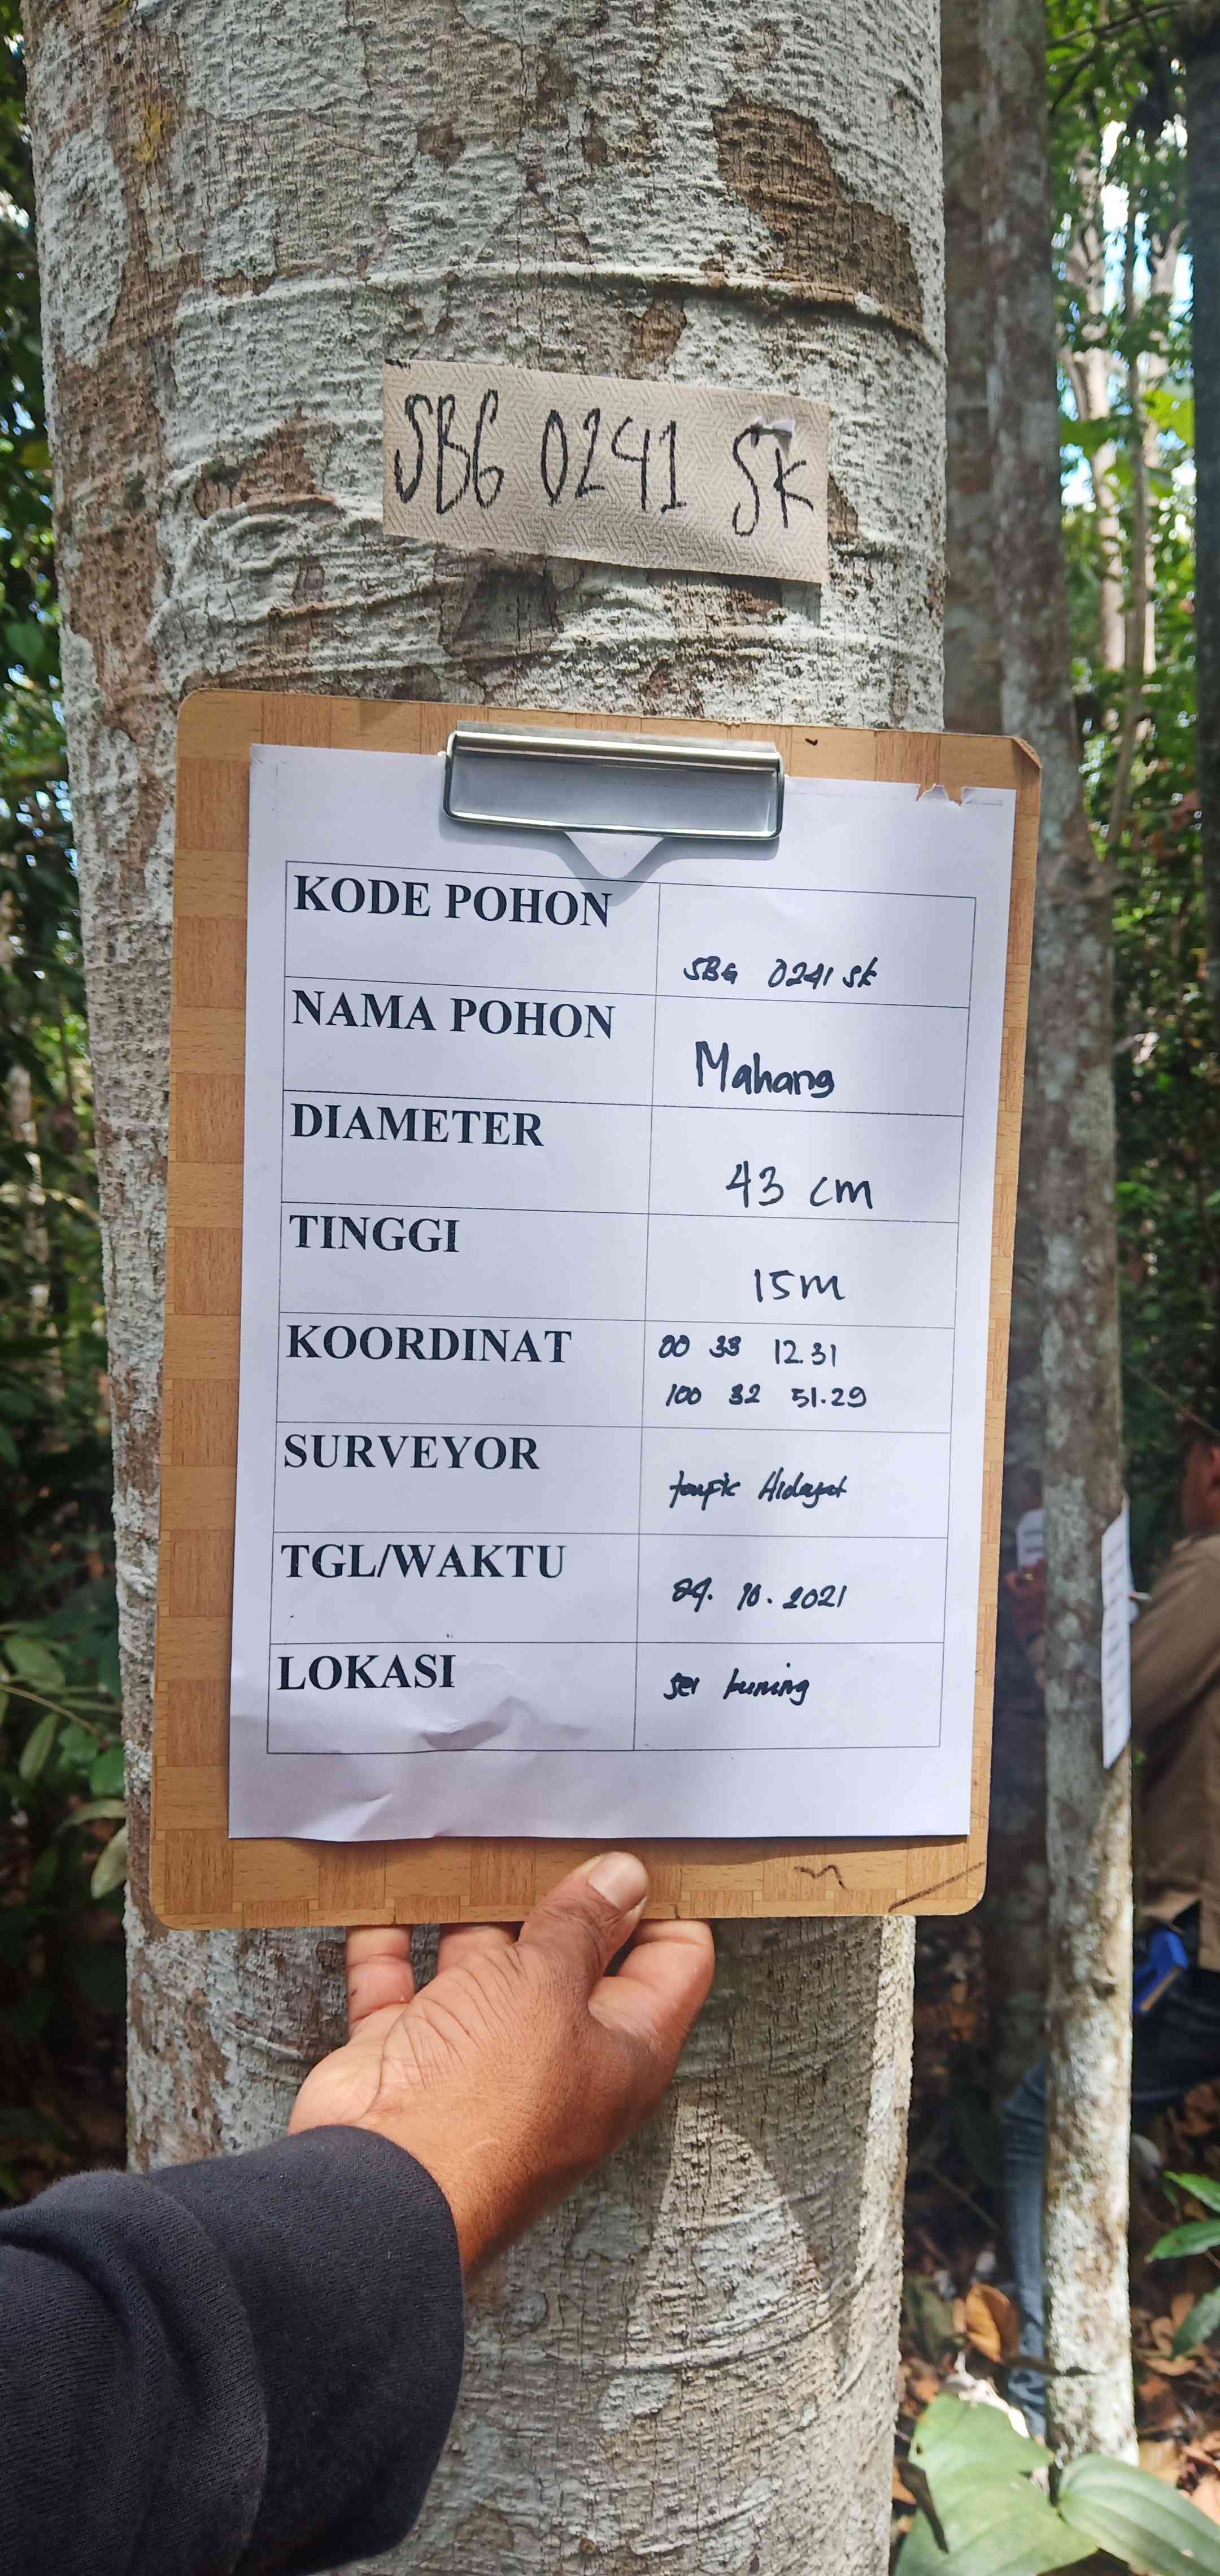 SBG 0241 SK
KODE POHON
SBG 0241 SK
NAMA POHON
Mahang
DIAMETER
43 cm
TINGGI
15m
KOORDINAT
00 33 12.31
100 32 51.29
SURVEYOR
taufic Hidayat
TGL/WAKTU
10.2021
LOKASI
sei kuning